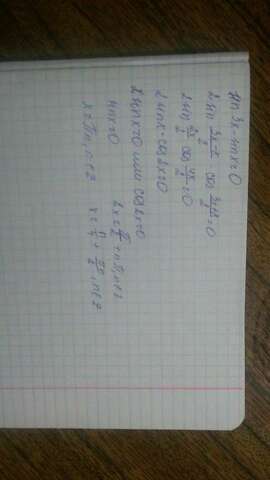 sin 3x - sin x = 0
2 sin (3x-x)/2 cos (3x+x)/2 = 0
2 sin 2x/2 cos 4x/2 = 0
2 sin x · cos 2x = 0
2 sin x = 0 или cos 2x = 0
sin x = 0 2x = π/2 + πn, n∈z
x = πn, n∈z x = π/4 + πn/2, n∈z